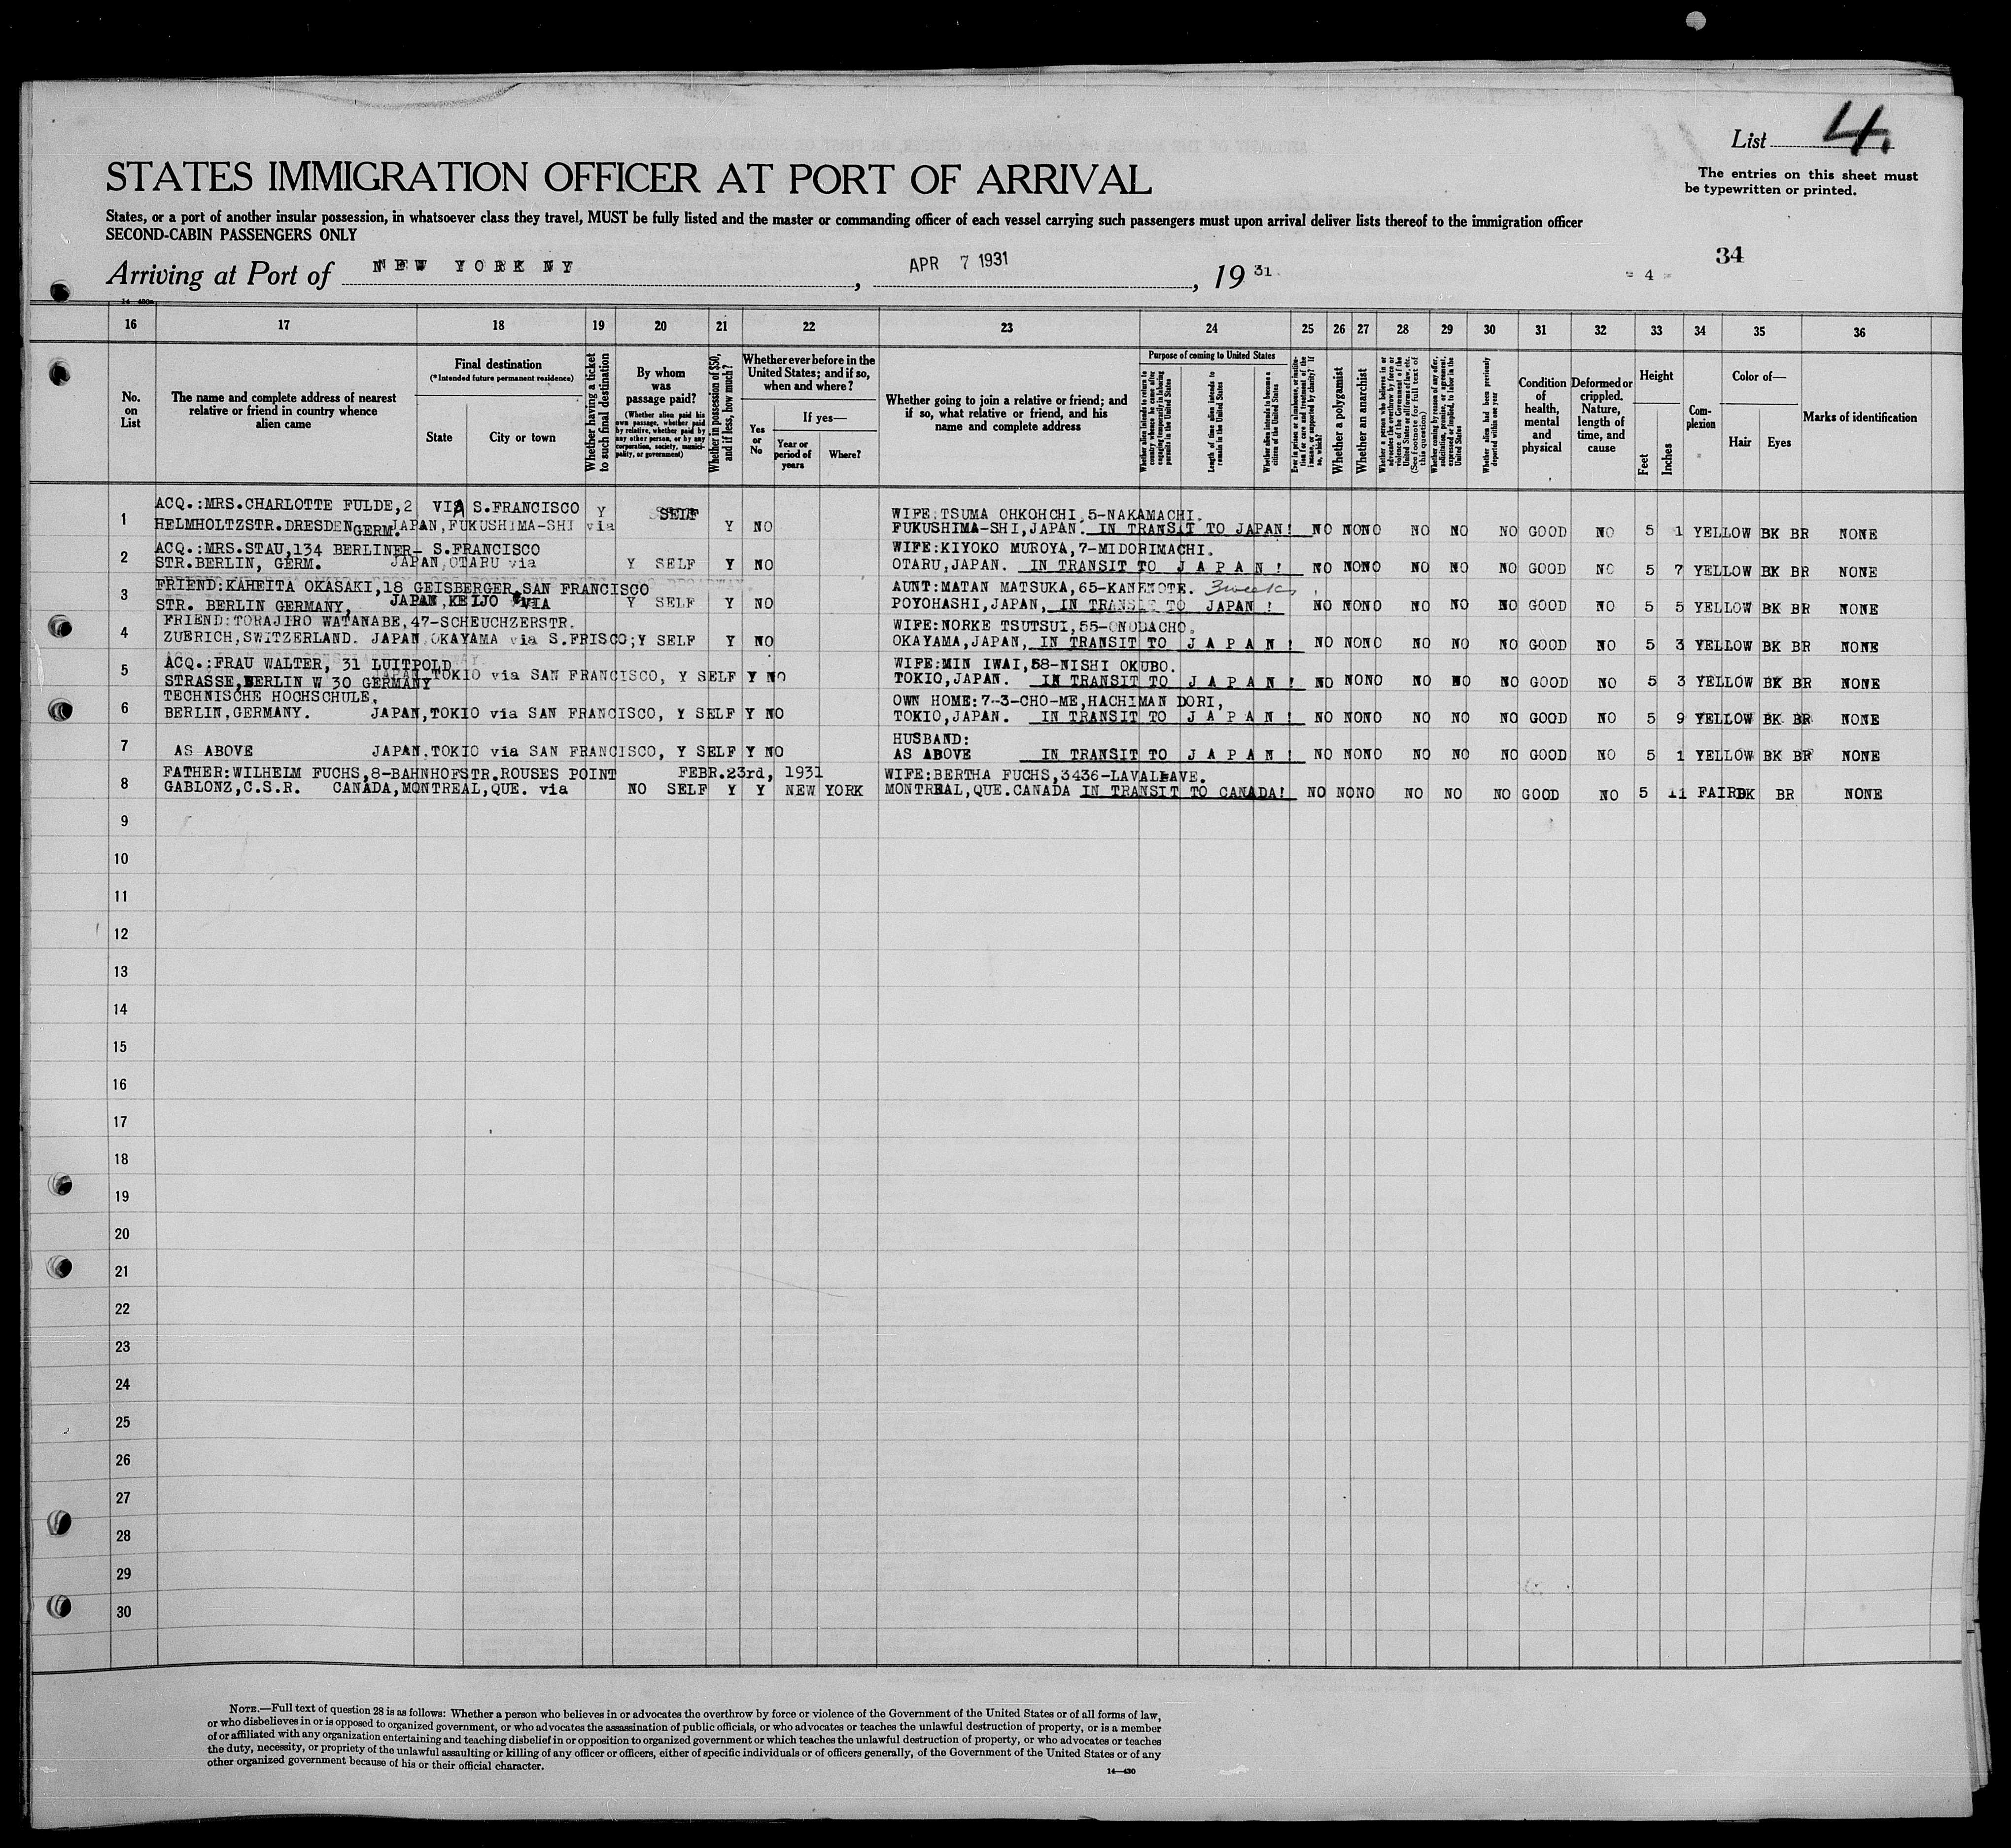 List 4.
The entries on this sheet must
be typewritten or printed.
STATES IMMIGRATION OFFICER AT PORT OF ARRIVAL
States, or a port of another insular possession, in whatsoever class they travel, MUST be fully listed and the master or commanding officer of each vessel carrying such passengers must upon arrival deliver lists thereof to the immigration officer
SECOND-CABIN PASSENGERS ONLY
34
Arriving at Port of NEW YORK NY, APR 7 1931, 19 31. - 4 -
14-430a
16 17 18 19 20 21 22 23 24 25 26 27 28 29 30 31 32 33 34 35 36
No. on List
The name and complete address of nearest relative or friend in country whence alien came
Final destination
(*Intended future permanent residence)
State
City or town
Whether having a ticket to such final destination
By whom was passage paid?
(Whether alien paid his own passage, whether paid by relative, whether paid by any other person, or by any corporation, society, municipality, or government)
Whether in possession of $50, and if less, how much?
Whether ever before in the United States; and if so, when and where?
Yes or No
If yes—
Year or period of years
Where?
Whether going to join a relative or friend; and if so, what relative or friend, and his name and complete address
Purpose of coming to United States
Whether alien intends to return to country whence he came after engaging temporarily in laboring pursuits in the United States
Length of time alien intends to remain in the United States
Whether alien intends to become a citizen of the United States
Ever in prison or almshouse, or institution for care and treatment of the insane, or supported by charity? If so, which?
Whether a polygamist
Whether an anarchist
Whether a person who believes in or advocates the overthrow by force or violence of the Government of the United States or all forms of law, etc. (See footnote for full text of this question)
Whether coming by reason of any offer, solicitation, promise, or agreement, expressed or implied, to labor in the United States
Whether alien had been previously deported within one year
Condition of health, mental and physical
Deformed or crippled. Nature, length of time, and cause
Height
Feet
Inches
Complexion
Color of—
Hair
Eyes
Marks of identification
ACQ.:MRS.CHARLOTTE FULDE,2 VIA S.FRANCISCO Y SELF WIFE:TSUMA OHKOHCHI,5-NAKAMACHI.
1 HELMHOLTZSTR.DRESDEN GERM. JAPAN,FUKUSHIMA-SHI via Y NO FUKUSHIMA-SHI,JAPAN. IN TRANSIT TO JAPAN! NO NONO NO NO NO GOOD NO 5 1 YELLOW BK BR NONE
ACQ.:MRS.STAU,134 BERLINER- S.FRANCISCO WIFE:KIYOKO MUROYA,7-MIDORIMACHI.
2 STR.BERLIN, GERM. JAPAN,OTARU via Y SELF Y NO OTARU,JAPAN. IN TRANSIT TO JAPAN! NO NONO NO NO NO GOOD NO 5 7 YELLOW BK BR NONE
FRIEND:KAHEITA OKASAKI,18 GEISBERGER SAN FRANCISCO AUNT:MATAN MATSUKA,65-KANEMOTE. 3 weeks
3 STR. BERLIN GERMANY, JAPAN,KEIJO VIA Y SELF Y NO POYOHASHI,JAPAN, IN TRANSIT TO JAPAN! NO NONO NO NO NO GOOD NO 5 5 YELLOW BK BR NONE
FRIEND:TORAJIRO WATANABE,47-SCHEUCHZERSTR. WIFE:NORKE TSUTSUI,55-ONODACHO.
4 ZUERICH,SWITZERLAND. JAPAN,OKAYAMA via S.FRISCO;Y SELF Y NO OKAYAMA,JAPAN, IN TRANSIT TO JAPAN! NO NONO NO NO NO GOOD NO 5 3 YELLOW BK BR NONE
ACQ.:FRAU WALTER, 31 LUITPOLD WIFE:MIN IWAI,58-NISHI OKUBO.
5 STRASSE,BERLIN W 30 GERMANY JAPAN TOKIO via SAN FRANCISCO, Y SELF Y NO TOKIO,JAPAN. IN TRANSIT TO JAPAN! NO NONO NO NO NO GOOD NO 5 3 YELLOW BK BR NONE
TECHNISCHE HOCHSCHULE, OWN HOME:7-3-CHO-ME,HACHIMAN DORI,
6 BERLIN,GERMANY. JAPAN,TOKIO via SAN FRANCISCO, Y SELF Y NO TOKIO,JAPAN. IN TRANSIT TO JAPAN! NO NONO NO NO NO GOOD NO 5 9 YELLOW BK BR NONE
HUSBAND:
7 AS ABOVE JAPAN.TOKIO via SAN FRANCISCO, Y SELF Y NO AS ABOVE IN TRANSIT TO JAPAN! NO NONO NO NO NO GOOD NO 5 1 YELLOW BK BR NONE
FATHER:WILHELM FUCHS,8-BAHNHOFSTR.ROUSES POINT FEBR.23rd, 1931 WIFE:BERTHA FUCHS,3436-LAVAL AVE.
8 GABLONZ,C.S.R. CANADA,MONTREAL,QUE. via NO SELF Y Y NEW YORK MONTREAL,QUE.CANADA IN TRANSIT TO CANADA! NO NONO NO NO NO GOOD NO 5 11 FAIR BK BR NONE
9
10
11
12
13
14
15
16
17
18
19
20
21
22
23
24
25
26
27
28
29
30
NOTE.—Full text of question 28 is as follows: Whether a person who believes in or advocates the overthrow by force or violence of the Government of the United States or of all forms of law,
or who disbelieves in or is opposed to organized government, or who advocates the assassination of public officials, or who advocates or teaches the unlawful destruction of property, or is a member
of or affiliated with any organization entertaining and teaching disbelief in or opposition to organized government or which teaches the unlawful destruction of property, or who advocates or teaches
the duty, necessity, or propriety of the unlawful assaulting or killing of any officer or officers, either of specific individuals or of officers generally, of the Government of the United States or of any
other organized government because of his or their official character.
14—430